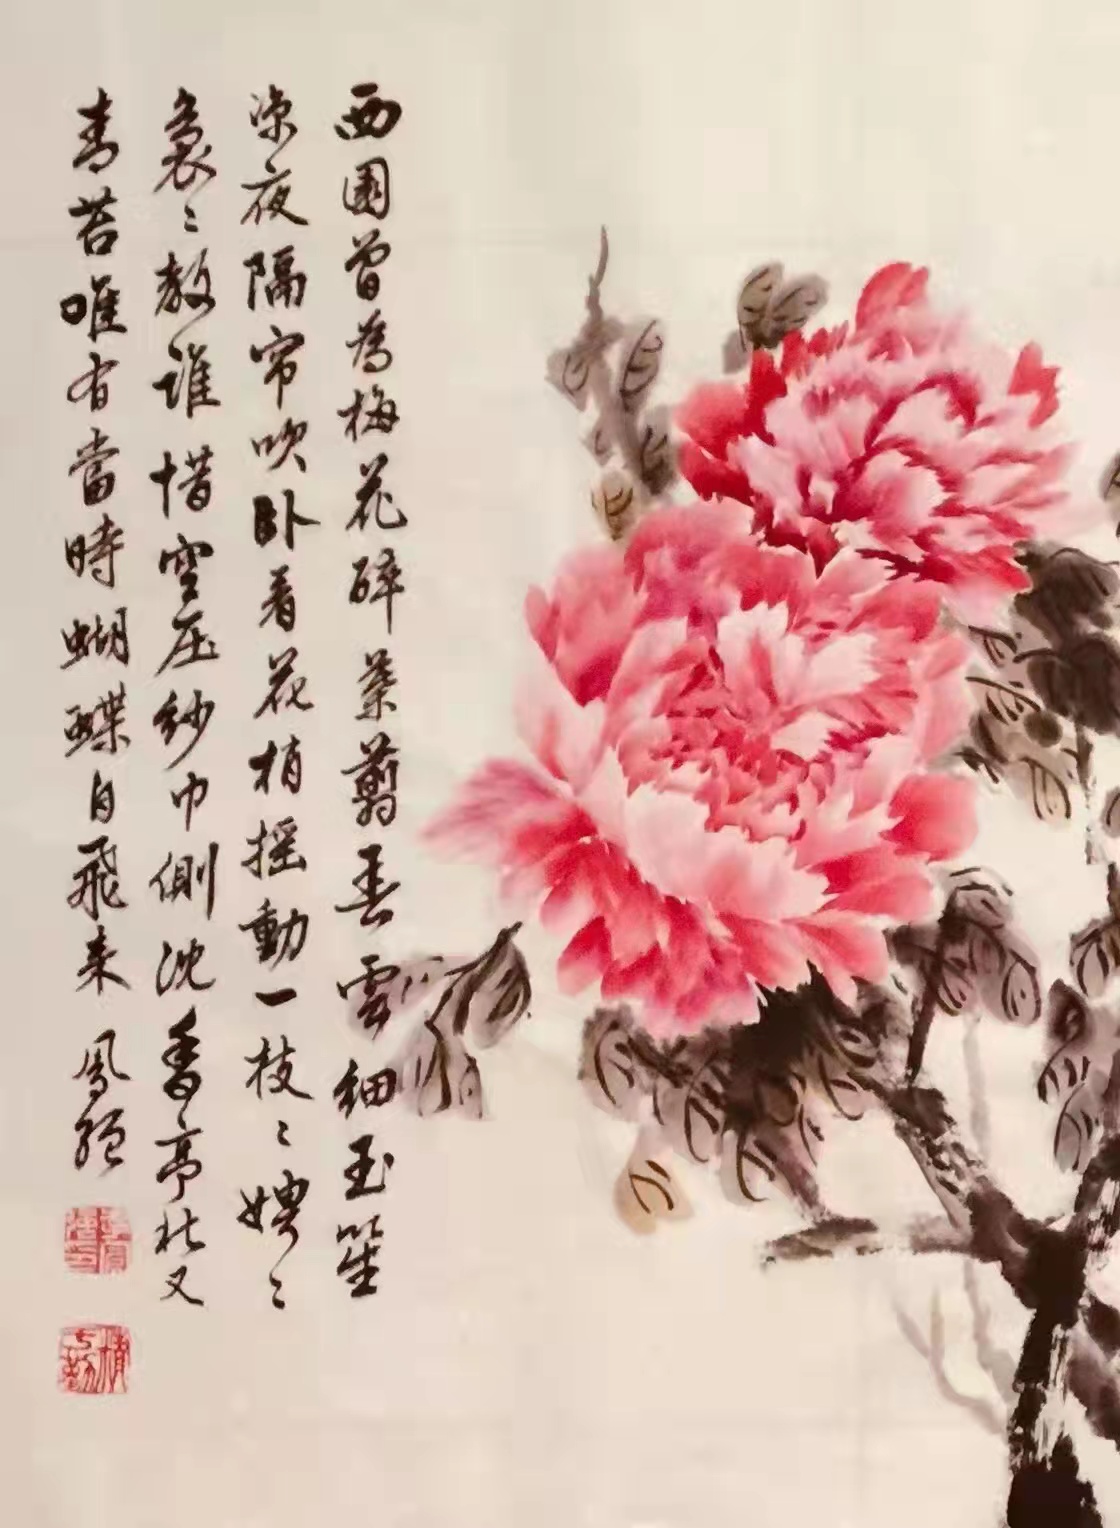 西園曾爲梅花醉葉剪春雲細玉笙
涼夜隔帘吹卧看花梢摇動一枝枝娉娉
裊裊教誰惜空压紗巾側沈香亭北又
青苔唯有當時蝴蝶自飛来